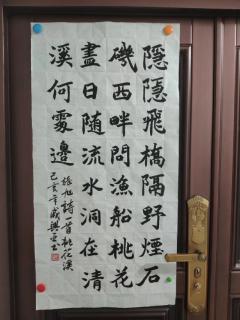 隱隱飛橋隔野煙石
磯西畔問漁船桃花
盡日随流水洞在清
溪何處邊
張旭詩首桃花溪
己亥年